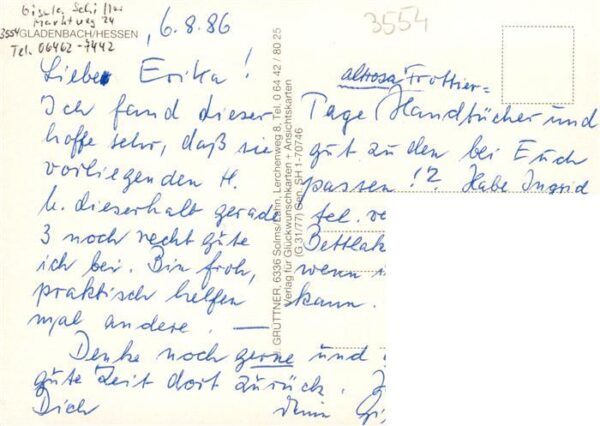 Gisela Schiller
Marktweg 24
3554 GLADENBACH/HESSEN
Tel. 06462-7442
6.8.86
3554
Liebe Erika!
altrosa Frottier=
Ich fand dieser Tage Handtücher und
hoffe sehr, daß sie gut zu den bei Euch
vorliegenden H. passen!? Habe Ingrid
h. dieserhalb gerade tel. ve
3 noch recht gute Bettlak
ich bei. Bin froh, wenn i
praktisch helfen kann.
mal andere. —
Denke noch gerne und
gute Zeit dort zurück.
Dich deine Gi
GRUTTNER, 6336 Solms/Lahn, Lerchenweg 8, Tel. 0 64 42 / 80 25
Verlag für Glückwunschkarten + Ansichtskarten
(G 31/77) Gen. SH 1-70746